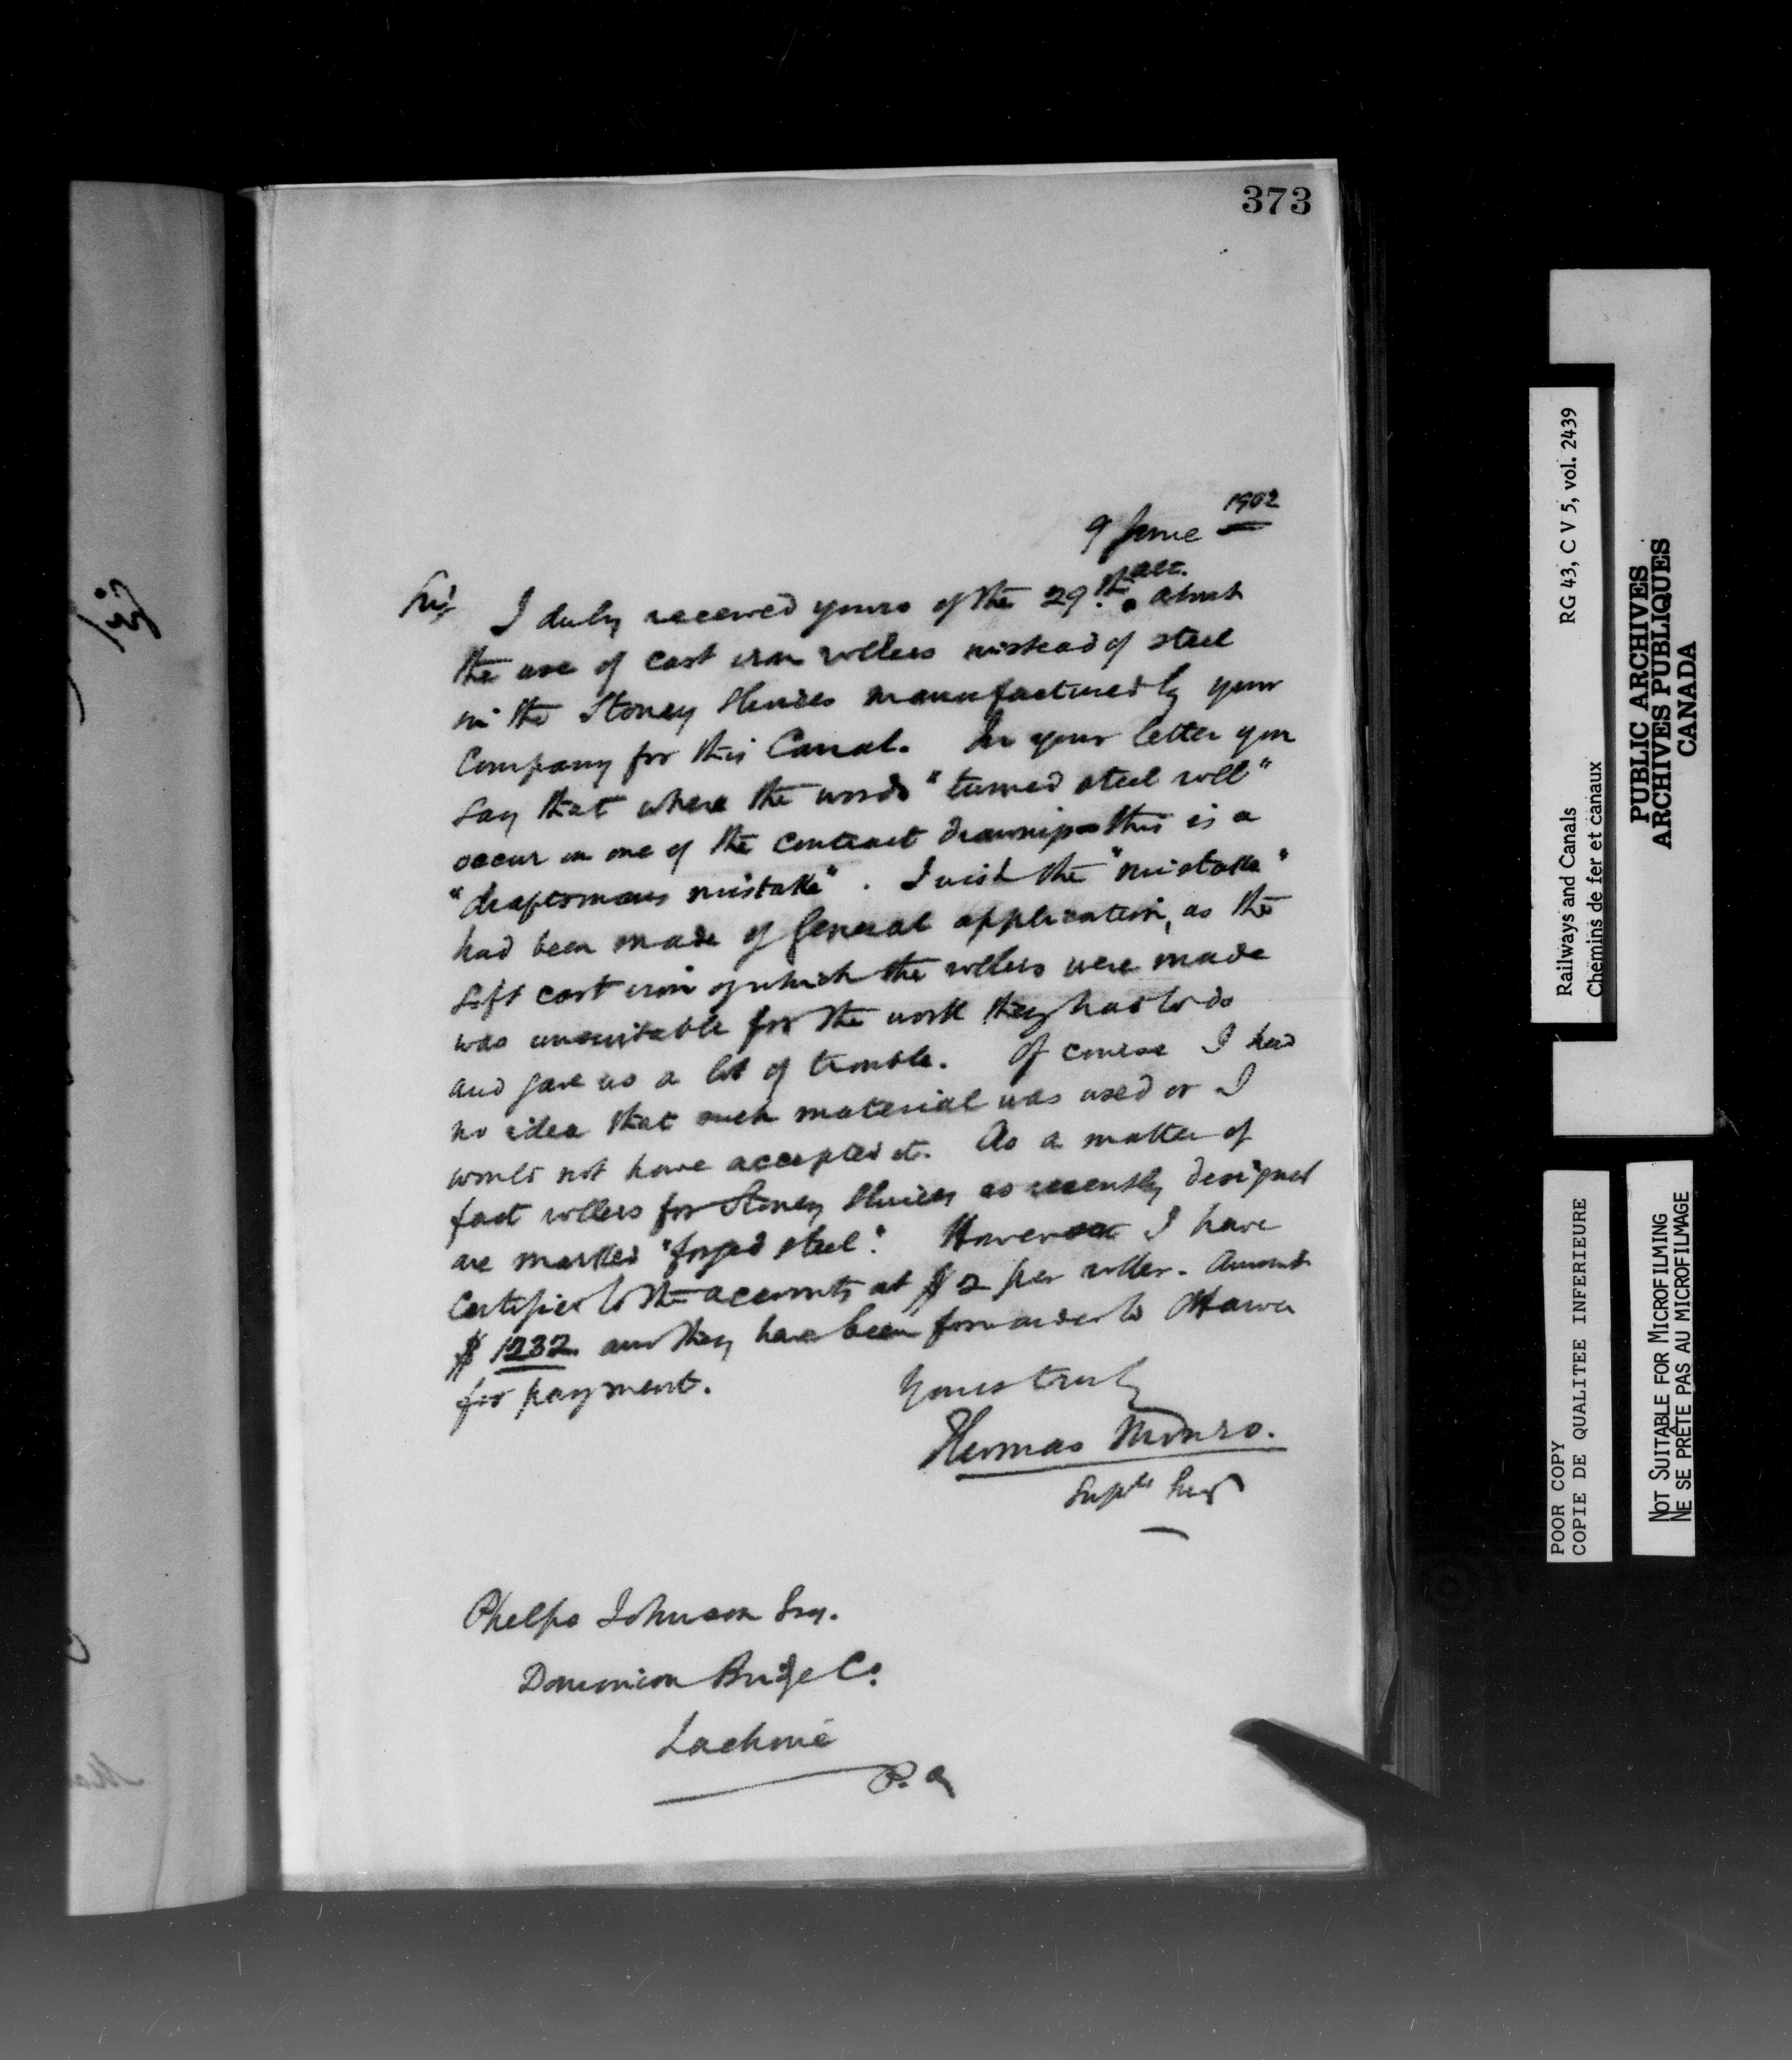 373
9 June 1902
Sir,
I duly received yours of the 29th ult. about
the use of cast iron rollers instead of steel
in the Stoney Sluices manufactured by your
Company for this Canal. In your letter you
say that where the words "turned steel roll"
occur on one of the contract drawings this is a
"draftsmans mistake". I wish the "mistake"
had been made of general application, as the
soft cast iron of which the rollers were made
was unsuitable for the work they had to do
and gave us a lot of trouble. Of course I had
no idea that such material was used or I
would not have accepted it. As a matter of
fact rollers for Stoney Sluices as recently designed
are marked "forged steel". However I have
certified to the accounts at $2 per roller. Amount
$1232 and they have been forwarded to Ottawa
for payment.
Yours truly
Thomas Monro.
Suptg Engr
Phelps Johnson Esq.
Dominion Bridge Co.
Lachine
P. Q
Sir,
Railways and Canals RG 43, C V 5, vol. 2439
Chemins de fer et canaux
PUBLIC ARCHIVES
ARCHIVES PUBLIQUES
CANADA
POOR COPY
COPIE DE QUALITEE INFERIEURE
NOT SUITABLE FOR MICROFILMING
NE SE PRÊTE PAS AU MICROFILMAGE